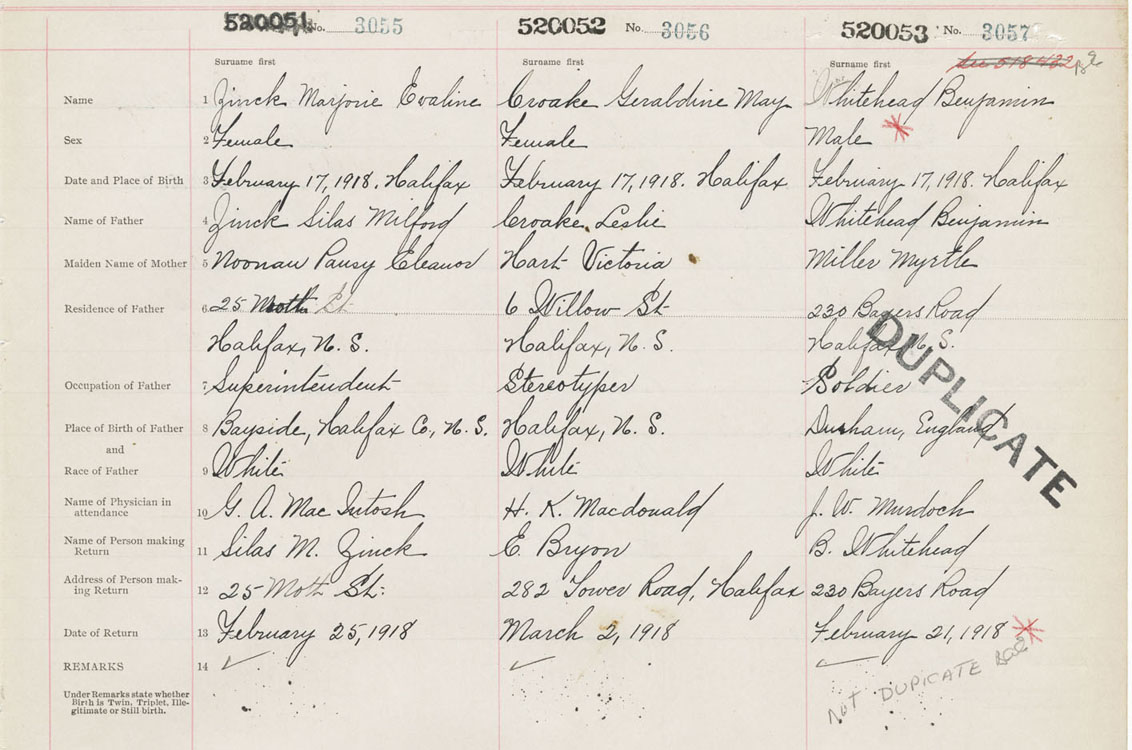 520051 No. 3055 520052 No. 3056 520053 No. 3057
Surname first Surname first Surname first
see 518482
Name 1 Zinck Marjorie Evaline Croake Geraldine May Whitehead Benjamin
Sex 2 Female Female Male
Date and Place of Birth 3 February 17, 1918. Halifax February 17, 1918. Halifax February 17, 1918. Halifax
Name of Father 4 Zinck Silas Milford Croake, Leslie Whitehead Benjamin
Maiden Name of Mother 5 Noonan Pansy Eleanor Hart Victoria Miller Myrtle
Residence of Father 6 25 St. 6 Willow St 230 Bayers Road
Halifax, N. S. Halifax, N. S. Halifax, N. S.
DUPLICATE
Occupation of Father 7 Superintendent Stereotyper Soldier
Place of Birth of Father 8 Bayside, Halifax Co., N. S. Halifax, N. S. Durham, England
and
Race of Father 9 White White White
Name of Physician in
attendance 10 G. A. MacIntosh H. K. Macdonald J. W. Murdoch
Name of Person making
Return 11 Silas M. Zinck E. Bryon B. Whitehead
Address of Person mak-
ing Return 12 25 Moth St: 282 Tower Road, Halifax 230 Bayers Road
Date of Return 13 February 25, 1918 March 2, 1918 February 21, 1918
REMARKS 14
NOT DUPICATE
Under Remarks state whether
Birth is Twin, Triplet, Ille-
gitimate or Still birth.